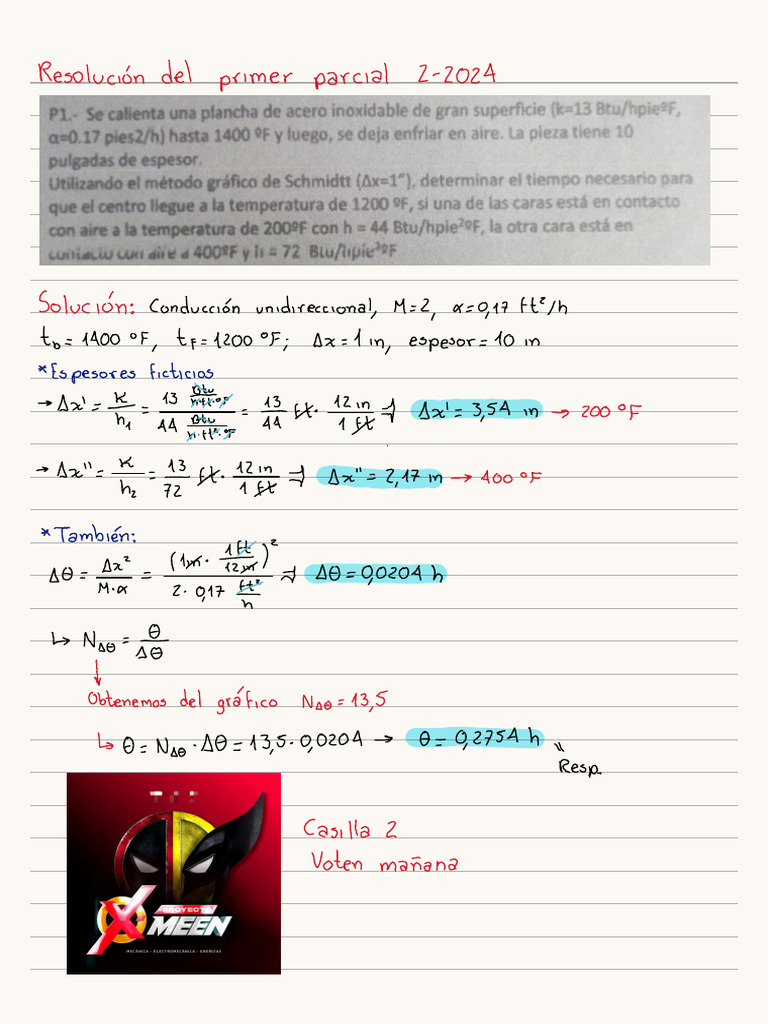 Resolución del primer parcial 2-2024
P1.- Se calienta una plancha de acero inoxidable de gran superficie (k=13 Btu/hpieºF,
α=0.17 pies2/h) hasta 1400 ºF y luego, se deja enfriar en aire. La pieza tiene 10
pulgadas de espesor.
Utilizando el método gráfico de Schmidtt (Δx=1"), determinar el tiempo necesario para
que el centro llegue a la temperatura de 1200 ºF, si una de las caras está en contacto
con aire a la temperatura de 200ºF con h = 44 Btu/hpie²ºF, la otra cara está en
contacto con aire a 400ºF y h = 72 Btu/hpie²ºF
Solución: Conducción unidireccional, M=2, α=0,17 ft²/h
t₀= 1400 °F, t_F=1200 °F; Δx=1 in, espesor=10 in
*Espesores ficticios
→ Δx' = K/h₁ = (13 Btu/h·ft·°F)/(44 Btu/h·ft²·°F) = 13/44 ft · 12 in/1 ft ⇒ Δx' = 3,54 in → 200 °F
→ Δx'' = K/h₂ = 13/72 ft · 12 in/1 ft ⇒ Δx'' = 2,17 in → 400 °F
*También:
Δθ = Δx²/M·α = (1in · 1ft/12in)²/(2 · 0,17 ft²/h) ⇒ Δθ = 0,0204 h
↳ N_Δθ = θ/Δθ
↓
Obtenemos del gráfico N_Δθ = 13,5
↳ θ = N_Δθ · Δθ = 13,5 · 0,0204 → θ = 0,2754 h
Resp.
Casilla 2
Voten mañana
PROYECTO
X MEEN
MECÁNICA - ELECTROMECÁNICA - ENERGÍAS